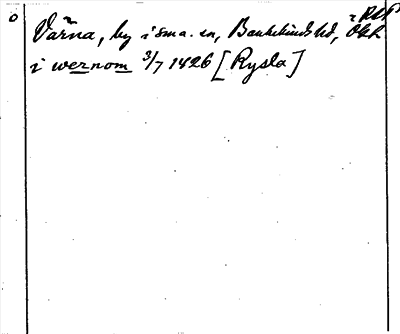 Värna, by i sma. sn, Bankekinds hd, Ög.
i wernom 3/7 1426 [Rysla]